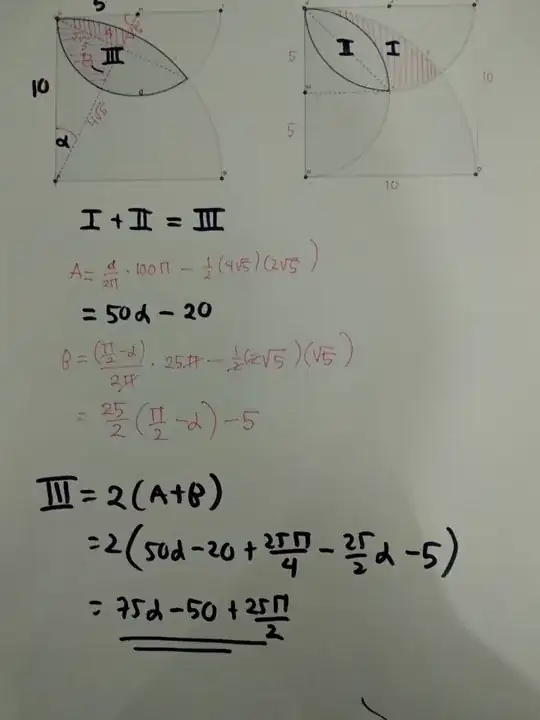 5
10
4
III
4√5
α
5
5
10
10
II
I
I + II = III
A = α/2π · 100π − 1/2 (4√5)(2√5)
= 50α − 20
B = (π/2 − α)/2π · 25π − 1/2 (2√5)(√5)
= 25/2 (π/2 − α) − 5
III = 2(A+B)
= 2(50α − 20 + 25π/4 − 25/2 α − 5)
= 75α − 50 + 25π/2